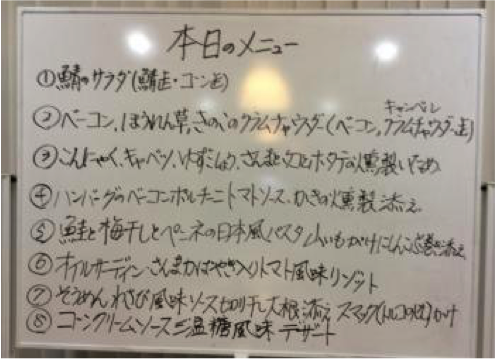 本日のメニュー
①鯖のサラダ(鯖缶・コーン缶)
キャンベル
②ベーコン,ほうれん草,きのこのクラムチャウダー(ベーコン,クラムチャウダー缶)
③こんにゃく、キャベツ、ゆずこしょう、さんま缶とホタテの燻製いため
④ハンバーグのベーコンポルチーニトマトソース、かきの燻製添え
⑤鮭と梅干しとペンネの日本風パスタ 山いもがけにしん昆布巻き添え
⑥オイルサーディンさんまかばやき入りトマト風味リゾット
⑦そうめんわさび風味ソース切り干し大根添え スマック(トルコの)かけ
⑧コーンクリームソース三温糖風味デザート